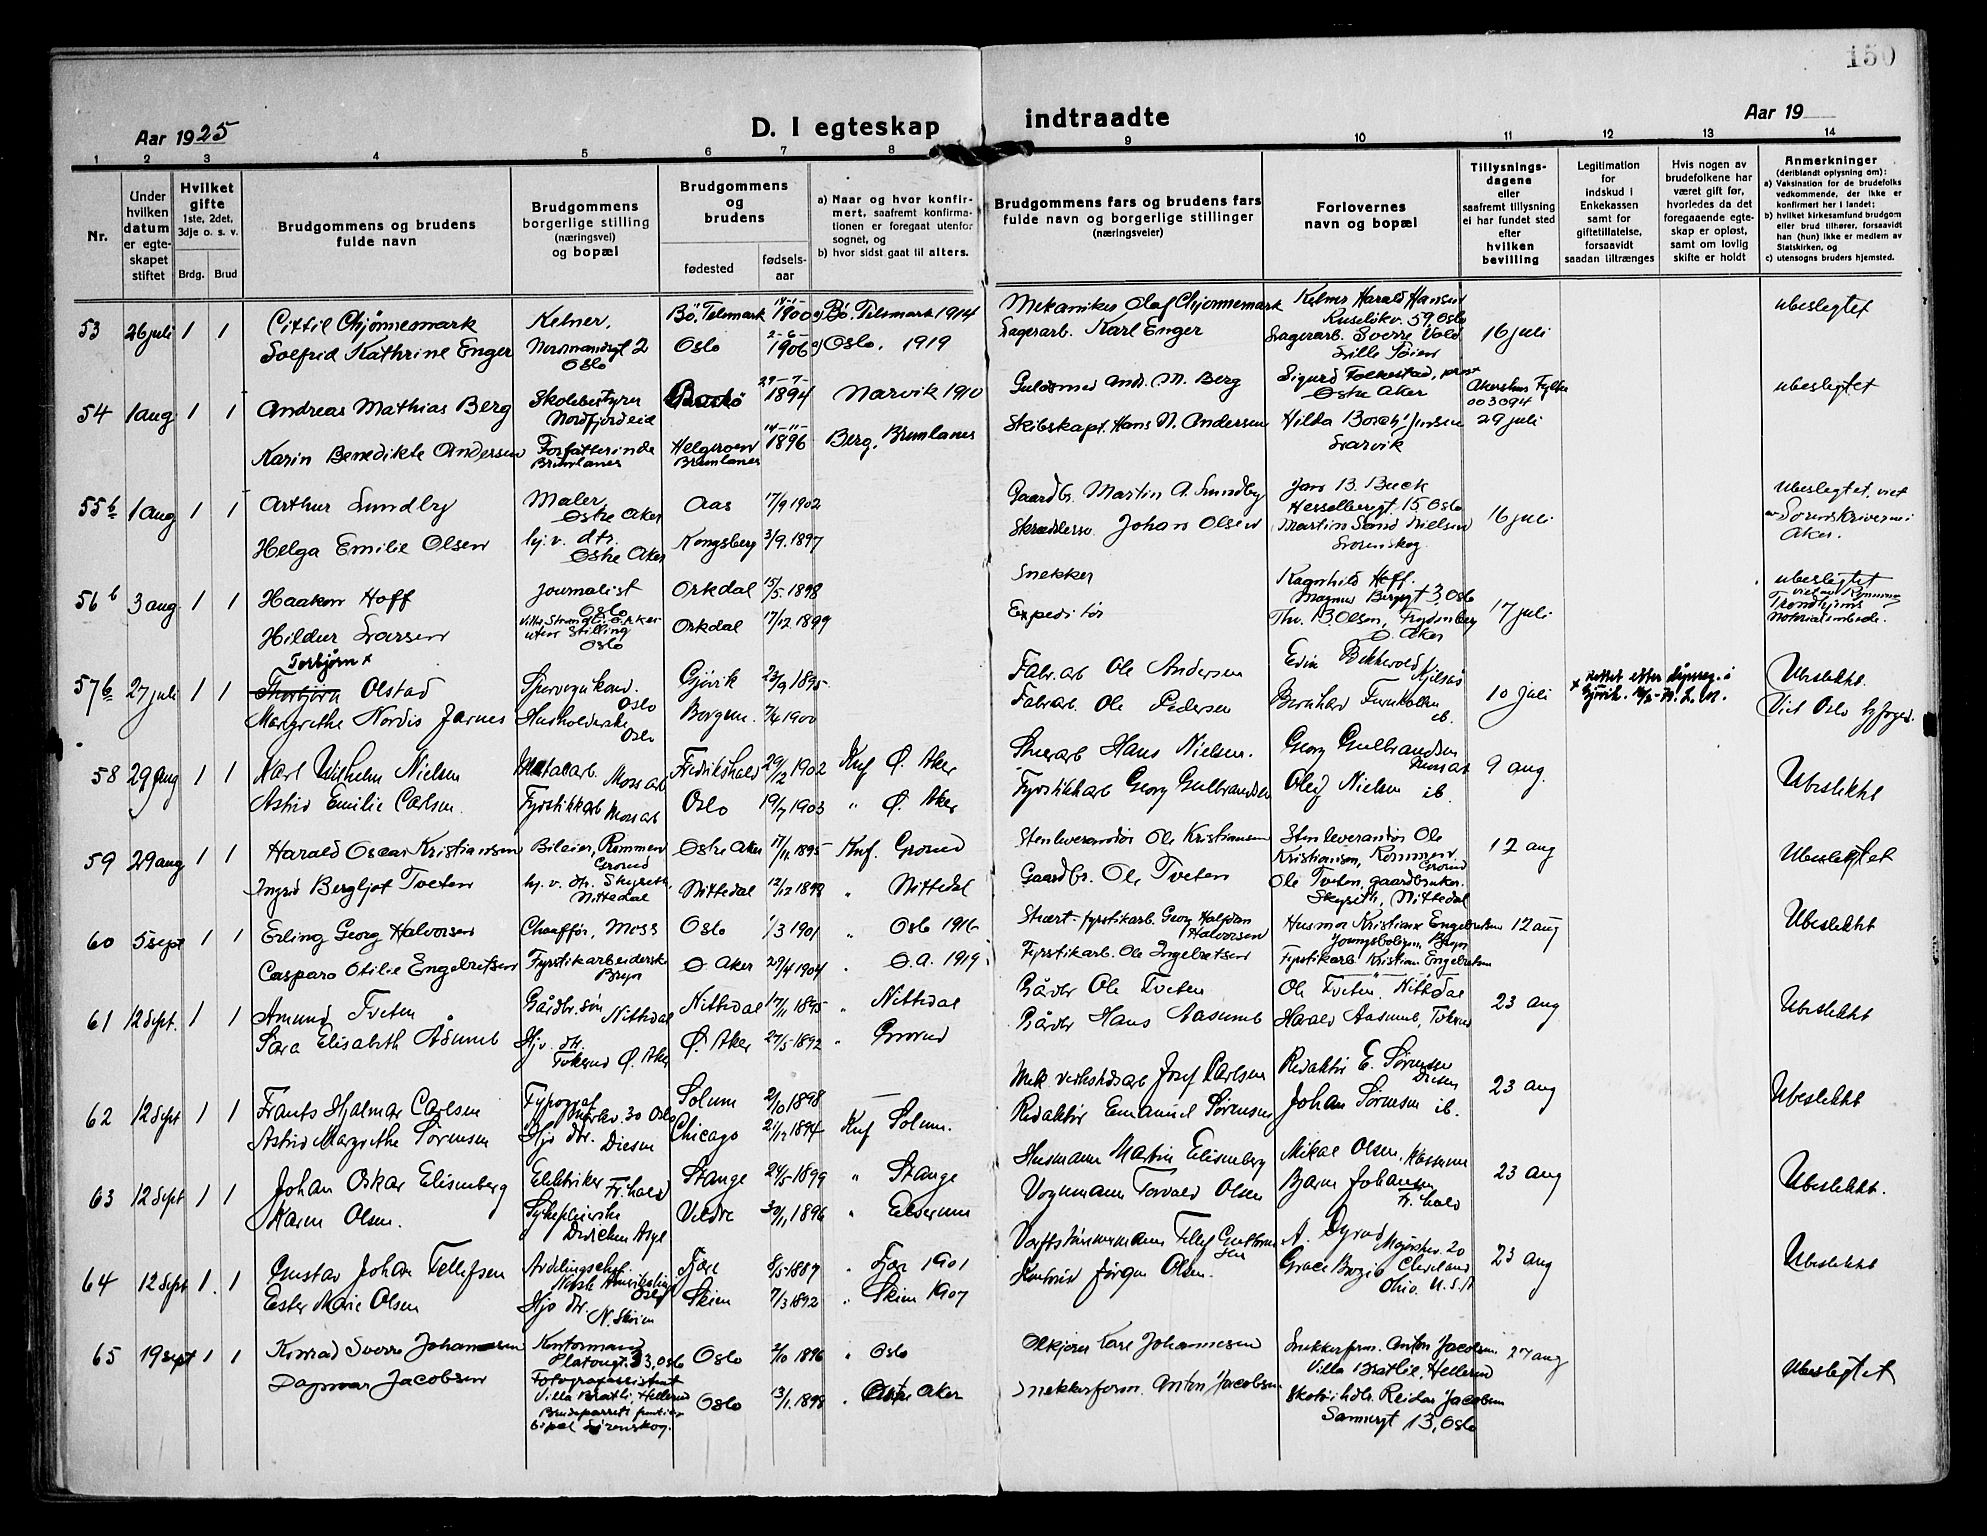 150
Aar 1925
D. I egteskap indtraadte
Aar 19
1 2 3 4 5 6 7 8 9 10 11 12 13 14
Nr.
Under hvilken datum er egteskapet stiftet
Hvilket gifte 1ste, 2det, 3dje o. s. v.
Brdg. Brud
Brudgommens og brudens fulde navn
Brudgommens borgerlige stilling (næringsvei) og bopæl
Brudgommens og brudens
fødested
fødselsaar
a) Naar og hvor konfirmert, saafremt konfirmationen er foregaat utenfor sognet, og
b) hvor sidst gaat til alters.
Brudgommens fars og brudens fars fulde navn og borgerlige stillinger (næringsveier)
Forlovernes navn og bopæl
Tillysningsdagene eller saafremt tillysning ei har fundet sted efter hvilken bevilling
Legitimation for indskud i Enkekassen samt for giftetillatelse, forsaavidt saadan tiltrænges
Hvis nogen av brudefolkene har været gift før, hvorledes da det foregaaende egteskap er opløst, samt om lovlig skifte er holdt
Anmerkninger (deriblandt oplysning om):
a) Vaksination for de brudefolks vedkommende, der ikke er konfirmert her i landet;
b) hvilket kirkesamfund brudgom eller brud tilhører, forsaavidt han (hun) ikke er medlem av Statskirken, og
c) utensogns bruders hjemsted.
53 26 juli 1 1 Cittil Chjønnesmark Kelner, Bø, Telemark 14-1- 1900 a) Bø. Telemark 1914 Mekaniker Olaf Chjønnemark Kelner Harald Hansen Ruseløkv. 59, Oslo 16 juli ubeslegtet
Solfrid Kathrine Enger Normannsgt 2 Oslo Oslo 2-6- 1906 a) Oslo. 1919 Lagerarb. Karl Enger Lagerarb. Sverre Vold Lille Tøien
54 1 aug 1 1 Andreas Mathias Berg Skolebestyrer Nordfjordeid 29-7- 1894 Narvik 1910 Guldsmed And. M. Berg Sigurd Folkestad, prest Østre Aker Akershus Fylke 003094 29 juli ubeslegtet
Karin Benedikte Andersen Forfatterinde Brunlanes Helgeroen Brunlanes 14-11- 1896 Berg, Brunlanes Skibskapt. Hans N. Andersen Hilda Borch Jensen Larvik
55 b 1 aug 1 1 Arthur Lundby Maler Østre Aker Aas 17/9 1902 Gaardbr. Martin A. Lundby Jans B. Buck Hesselbergt. 15 Oslo 16 juli Ubeslegtet, viet av Sorenskriveren i Aker.
Helga Emilie Olsen hj. v. dtr. Østre Aker Kongsberg 3/9. 1897 Johan Olsen Martin Sand Nielsen Lørenskog
56 b 3 aug 1 1 Haakon Hoff Journalist Oslo Orkdal 15/5 1898 Snekker Ragnhild Hoff. Magnus Bergsgt 3, Oslo 17 juli ubeslegtet Trondhjems Notarialembede.
Hildur Larsen uten Stilling Oslo Orkdal 17/12 1899 Expeditør Thv. B. Olsen, Frydenberg Ø. Aker
57 b 27 juli 1 1 Torbjørn x Thorbjørn Olstad Sporveiskond. Oslo Gjøvik 23/9 1895 Fabr.arb Ole Andersen Edin Bekkevold Kjelsås 10 juli x rettet efter dåpsreg. i Gjøvik. Ubeslekt. Viet Oslo byfoged.
Margrethe Nordis Jarnes Husholderske Oslo Borgun 7/4 1900 Fabrarb. Ole Pedersen Bernhard Furuholmen ib.
58 29 Aug 1 1 Karl Wilhelm Nielsen Metalarb. Mossart Fredrikshald 29/12 1902 Knf Ø. Aker Stuerarb Hans Nielsen. Georg Gulbrandsen 9 aug. Ubeslekt
Astrid Emilie Carlsen. Fyrstikkarb Oslo 19/7 1903 " Ø. Aker Fyrstikkarb Georg Gulbrandsen Oleif Nielsen ib.
59 29 aug 1 1 Harald Oscar Kristiansen Bileier, Rommen Grorud Østre Aker 17/11 1895 Knf. Grorud Stenleverandør Ole Kristiansen Stenleverandør Ole Kristiansen, Rommen Grorud 12 aug Ubeslegtet
Ingrid Bergljot Tveten hj. v. dtr. Skyseth, Nittedal Nittedal 12/12 1899 " Nittedal Gaardbr. Ole Tveten Ole Tveten, gaardbruker. Skyseth, Nittedal
60 5 sept 1 1 Erling Georg Halvorsen Chauffør, Moss Oslo 1/3 1901 " Oslo 1916 Georg Halfdan Halvorsen Husmor Kristiane Engebretsen Bryn 12 aug Ubeslekt
Caspara Otilie Engebretsen Fyrstikarbeiderske Bryn Ø Aker 29/4 1904 " Ø. A. 1919. Fyrstikarb. Ole Ingebretsen Fyrstikarb Kristian Engebretsen
61 12 Sept. 1 1 Amund Tveten Gårdbr. søn Nittedal Nittedal 17/11 1895 " Nittedal Gårdbr Ole Tveten Ole Tveten. Nittedal 23 aug Ubeslekt
Sara Elisabeth Åsumb Hjv. dtr. Tokerud Ø. Aker Ø. Aker 27/5 1892 " Grorud Gårdbr Hans Aasumb Harald Aasumb, Tokerud
62 12 Sept 1 1 Frants Hjalmar Carlsen Typograf 30 Oslo Solum 2/10 1898 — Mek. verkstedsarb Josef Carlsen Redaktør E. Sørensen Diesen 23 aug Ubeslekt
Astrid Margrethe Sørensen Hjv dtr. Diesen Chicago 21/12 1894 Knf Solum. Redaktør Emanuel Sørensen Johan Sørensen ib.
63 12 Sept 1 1 Johan Oskar Elisenberg Elektriker Fr. hald Stange 24/5 1899 " Stange Husmann Martin Elisenberg Mikal Olsen, 23 aug Ubeslekt.
Karen Olsen. Sykepleierske Dikemark Asyl Veldre 30/11 1896 " Elverum Vognmann Torvald Olsen Bjarne Johansen Fr. hald
64 12 Sept 1 1 Gustav Johan Tellefsen Avdelingschef. Norske Amerikalinje Oslo Fjære 8/5 1887 " Fjære 1901 Verftstømmermann Tellef Guttormsen A. Dyrud Majorstuv. 20 23 aug Ubeslekt
Ester Marie Olsen Hjv dtr. N. Skøien Skien 7/3 1892 " Skien 1907 Kontorist Jørgen Olsen. Grace Cleveland Ohio. U.S.A
65 19 sept 1 1 Konrad Sverre Johannesen Kontormand Platougt. 33, Oslo Oslo 2/10 1896 " Oslo Karl Johannesen Snekkerform. Anton Jacobsen Villa Bratlie, Hellerud 27 aug Ubeslegtet
Dagmar Jacobsen Fotografassistent Villa Bratli, Hellerud Brudeparrets fremtidige bopæl Lørenskog. Oslo 13/1. 1898 " Østre Aker Snekkerform. Anton Jacobsen Skotøihdl. Reidar Jacobsen Sannergt 13, Oslo